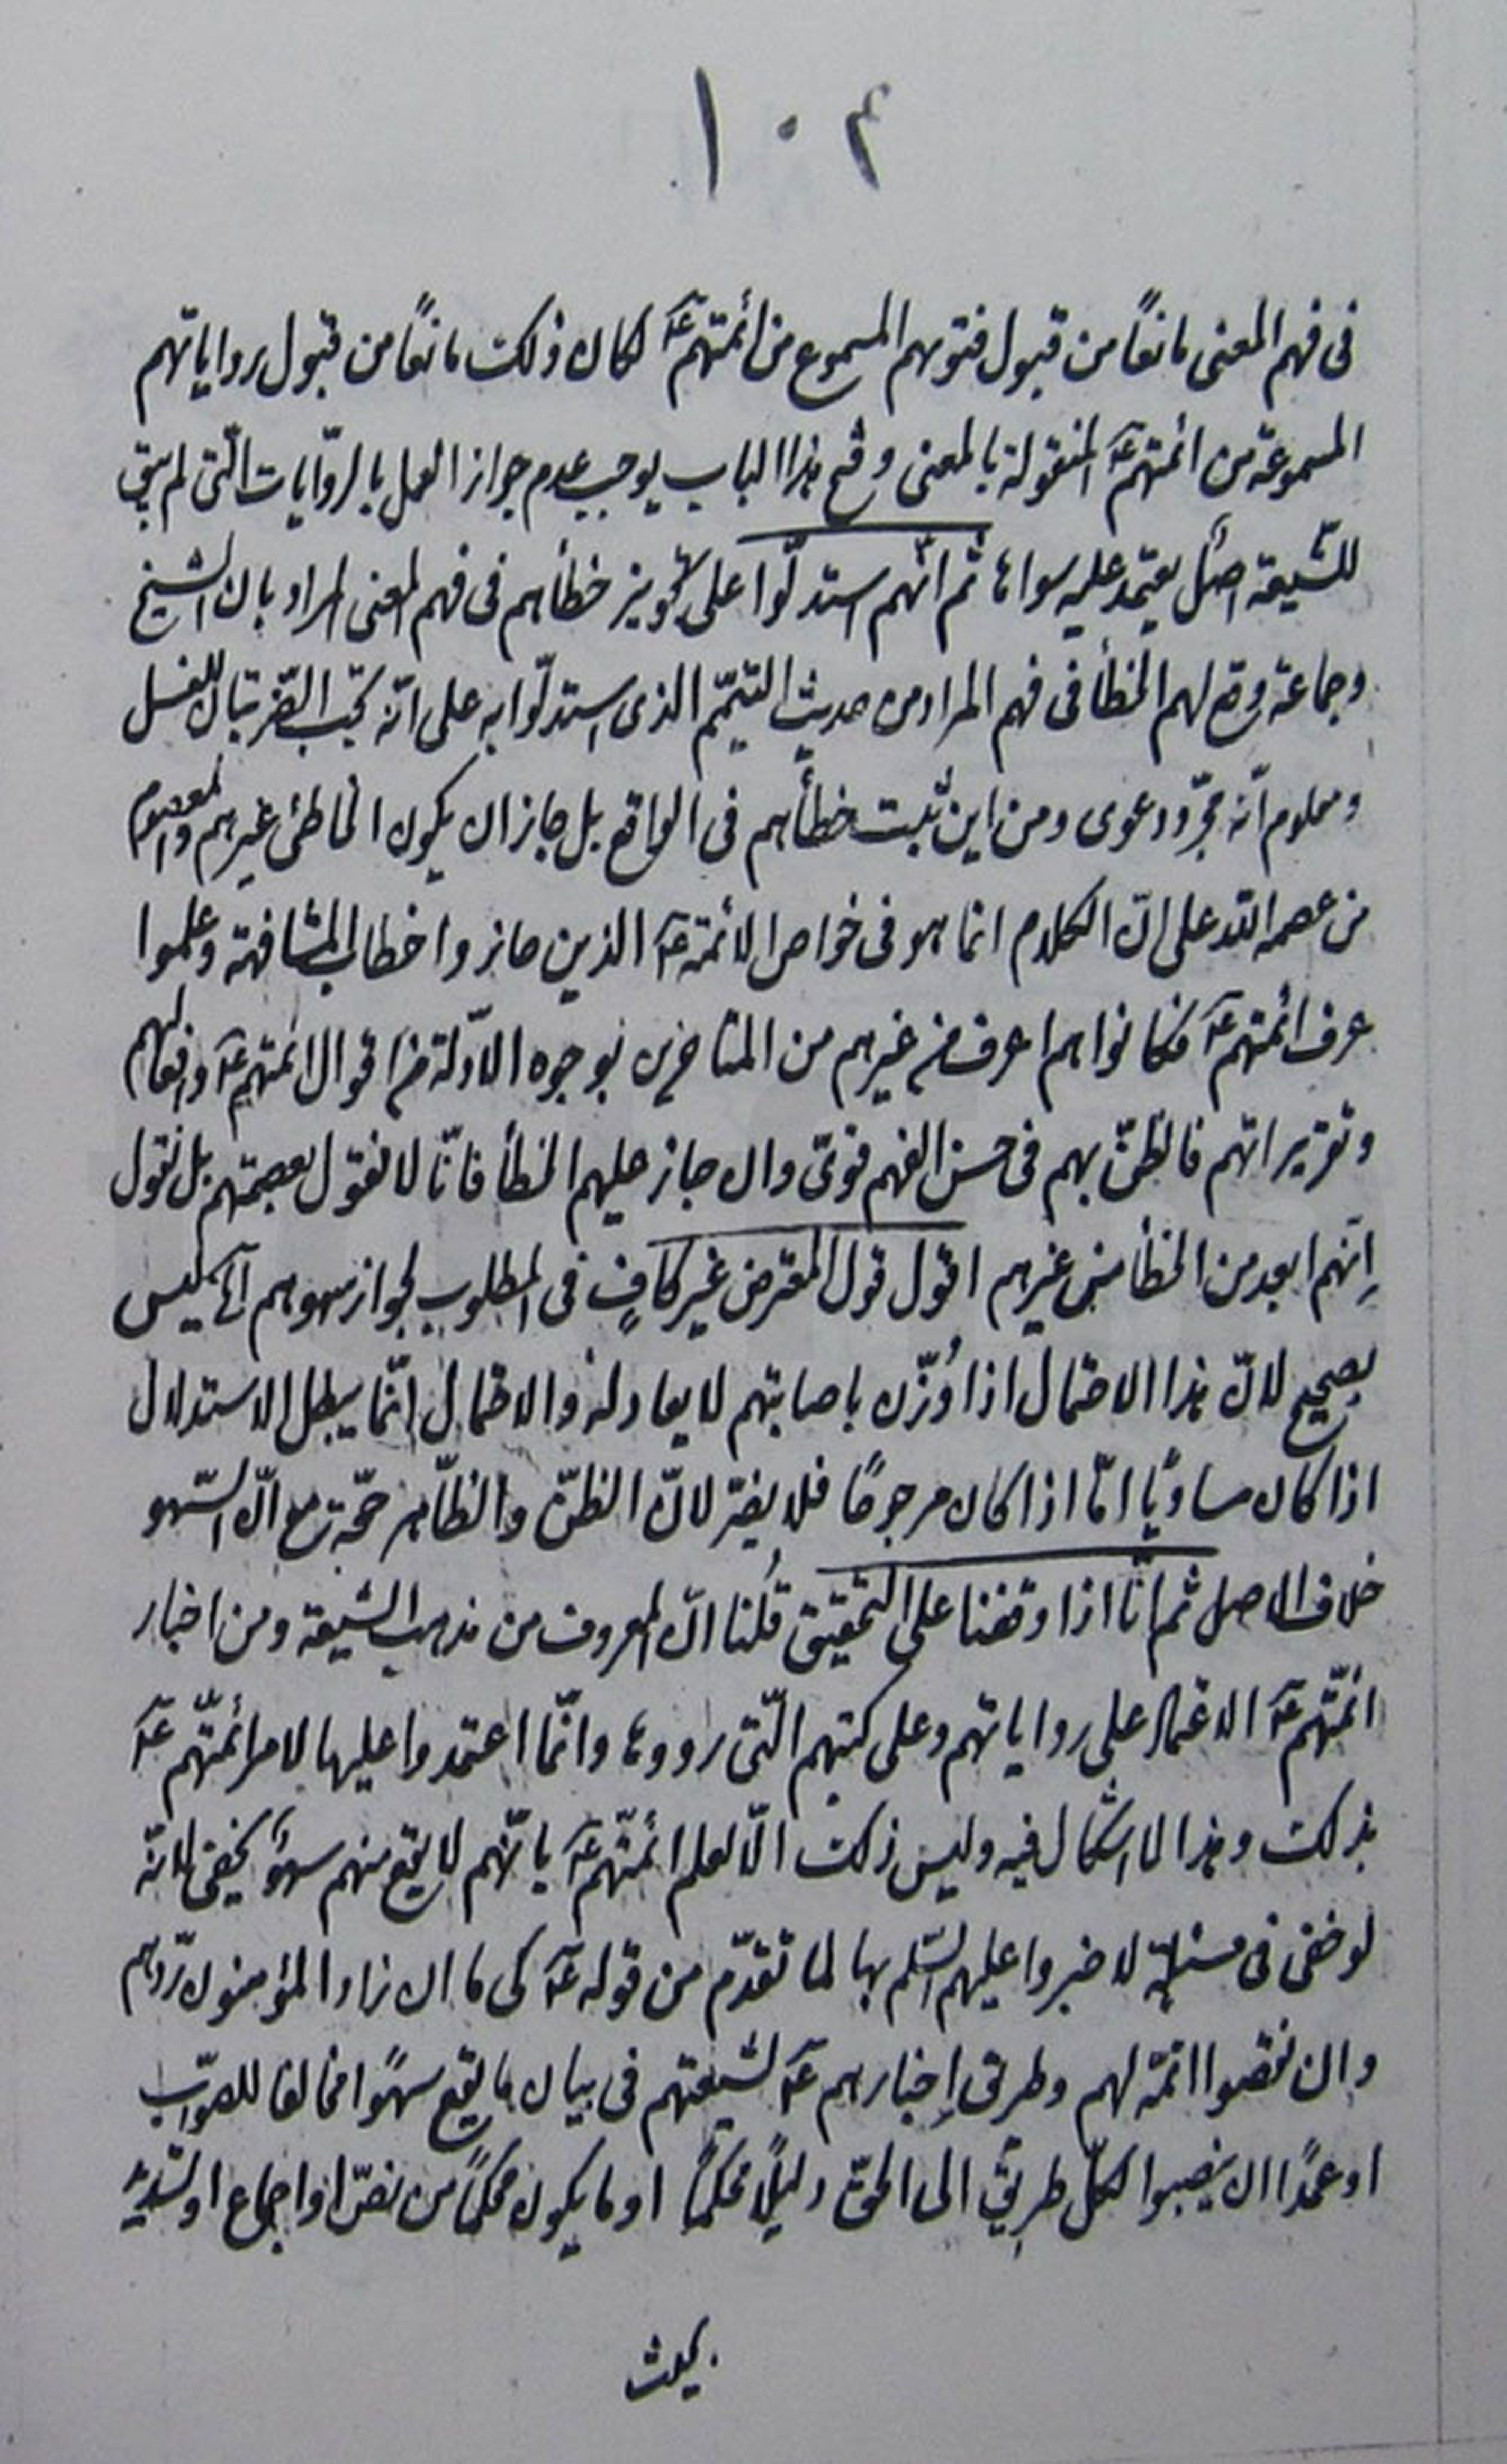 ١٠٤
فى فهم المعنى مانعًا من قبول فتويهم المسموع من ائمتهم عَ لكان ذلك مانعًا من قبول رواياتهم
المسموعة من ائمتهم عَ المنقولة بالمعنى وفتح هذا الباب يوجب عدم جواز العمل بالروّايات الّتى لم يبق
للشّيعة اصل يعتمد عليه سواها ثم انّهم استدلّوا على تجويز خطأهم فى فهم المعنى المراد بان الشيخ
وجماعة وقع لهم الخطأ فى فهم المراد من حديث التيمّم الذى استدلّوا به على انّه تجب الضّربتان للغسل
ومعلوم انّه مجرّد دعوى ومن اين ثبت خطأهم فى الواقع بل جاز ان يكون الخاطئ غيرهم والمعصوم
من عصمه الله على انّ الكلام انما هو فى خواص الائمة عَ الذين حازوا خطاب المشافهة وعلموا
عرف ائمتهم عَ فكانوا هم اعرف من غيرهم من المتاخرين بوجوه الادّلة من اقوال ائمتهم عَ وافعالهم
وتقريراتهم فالظنّ بهم فى حسن الفهم قوىّ وان جاز عليهم الخطأ فانّا لا نقول بعصمتهم بل نقول
إنّهم ابعد من الخطأ من غيرهم اقول قول المعترض غير كافٍ فى المطلوب لجواز سهوهم آه ليس
بصحيح لانّ هذا الاحتمال اذا وُزّن باصابتهم لا يعادله والاحتمال انّما يبطل الاستدلال
اذا كان مساويًا امّا اذا كان مرجوحًا فلا يضرّ لانّ الظنّ والظّاهر حجّة مع انّ السّهو
خلاف الاصل ثم انّا اذا وقفنا على التحقيق قُلنا انّ المعروف من مذهب الشيعة ومن اخبار
ائمّتهم عَ الاعتماد على رواياتهم وعلى كتبهم الّتى رووها وانّما اعتمدوا عليها لامر ائمّتهم عَ
بذلك وهذا لا اشكال فيه وليس ذلك الّا لعلم ائمّتهم عَ بانّهم لا يقع منهم سهوٌ يخفى لانّه
لو خفى فى مسئلة لاخبروا عليهم السّلم بها لما تقدّم من قوله عَ كى ما ان زاد المؤمنون ردّهم
وان نقصوا اتمّه لهم وطريق إخبارهم عَ لشيعتهم فى بيان ما يقع سهوًا مخالفا للصّواب
او عمدًا ان ينصبوا لكلّ طريق الى الحقّ دليلًا محكمًا او ما يكون محكمًا من نصّ او اجماع او
بحيث